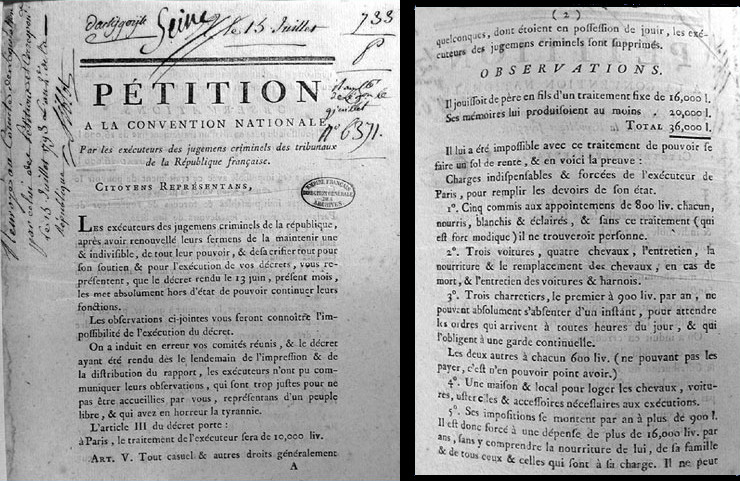 Seine
le 15 Juillet
733
P
PÉTITION
A LA CONVENTION NATIONALE,
n° 6371.
Par les exécuteurs des jugemens criminels des tribunaux
de la République françaife.
CITOYENS REPRÉSENTANS,
LES exécuteurs des jugemens criminels de la république,
après avoir renouvellé leurs fermens de la maintenir une
& indivifible, de tout leur pouvoir, & de facrifier tout pour
fon foutien & pour l'exécution de vos décrets, vous re-
préfentent, que le décret rendu le 13 juin, préfent mois,
les met abfolument hors d'état de pouvoir continuer leurs
fonctions.
Les obfervations ci-jointes vous feront connoître l'im-
poffibilité de l'exécution du décret.
On a induit en erreur vos comités réunis, & le décret
ayant été rendu dès le lendemain de l'impreffion & de
la diftribution du rapport, les exécuteurs n'ont pu com-
muniquer leurs obfervations, qui font trop juftes pour ne
pas être accueillies par vous, repréfentans d'un peuple
libre, & qui avez en horreur la tyrannie.
L'article III du décret porte :
à Paris, le traitement de l'exécuteur fera de 10,000 liv.
ART. V. Tout cafuel & autres droits généralement
A
( 2 )
quelconques, dont étoient en poffeffion de jouir, les exé-
cuteurs des jugemens criminels font fupprimés.
OBSERVATIONS.
Il jouiffoit de père en fils d'un traitement fixe de 16,000 l.
Ses mémoires lui produifoient au moins . 20,000 l.
TOTAL 36,000 l.
Il lui a été impoffible avec ce traitement de pouvoir fe
faire un fol de rente, & en voici la preuve :
Charges indifpenfables & forcées de l'exécuteur de
Paris, pour remplir les devoirs de fon état.
1°. Cinq commis aux appointemens de 800 liv. chacun,
nourris, blanchis & éclairés, & fans ce traitement (qui
eft fort modique) il ne trouveroit perfonne.
2°. Trois voitures, quatre chevaux, l'entretien, la
nourriture & le remplacement des chevaux, en cas de
mort, & l'entretien des voitures & harnois.
3°. Trois charretiers, le premier à 900 liv. par an, ne
pouvant abfolument s'abfenter d'un inftant, pour attendre
les ordres qui arrivent à toutes heures du jour, & qui
l'obligent à une garde continuelle.
Les deux autres à chacun 600 liv. (ne pouvant pas les
payer, c'eft n'en pouvoir point avoir.)
4°. Une maifon & local pour loger les chevaux, voitu-
res, uftenciles & acceffoires néceffaires aux exécutions.
5°. Ses impofitions fe montent par an à plus de 900 l.
Il eft donc forcé à une dépenfe de plus de 16,000 liv. par
ans, fans y comprendre la nourriture de lui, de fa famille
& de tous ceux & celles qui font à fa charge. Il ne peut